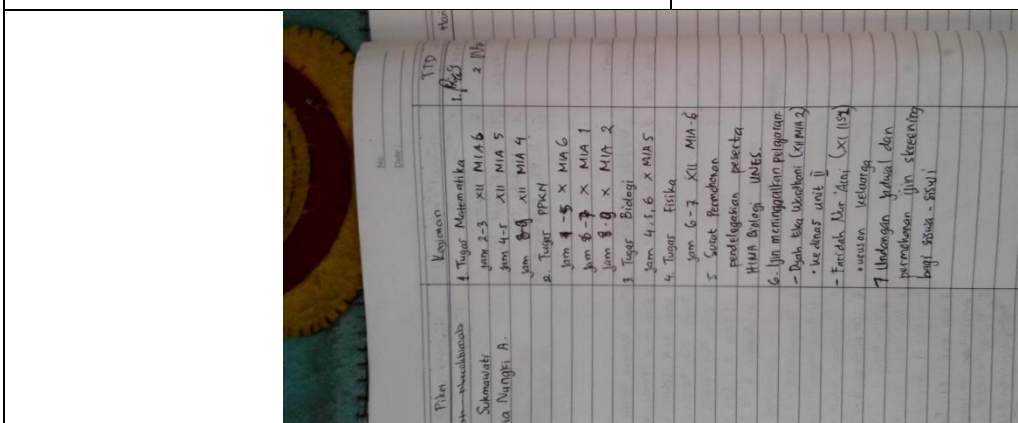 No.
Date
Piket
Kegiatan
TTD
Hari
Sukmawati
Nungki A.
1. Tugas Matematika
Jam 2-3 XII MIA 6
Jam 4-5 XII MIA 5
Jam 8-9 XII MIA 4
2. Tugas PPKN
Jam 4-5 X MIA 6
Jam 6-7 X MIA 1
Jam 8-9 X MIA 2
3 Tugas Biologi
Jam 4,5,6 X MIA 5
4. Tugas Fisika
Jam 6-7 XII MIA-6
5 Surat Permohonan
pendelegasian peserta
HIMA Biologi UNES.
6. Ijin meninggalkan pelajaran
- Dyah Eka Wardhani (XII MIA 2)
• ke dinas unit II
- Faridah Nur 'Aini (XI IIS 2)
• urusan keluarga
7 Undangan jadwal dan
permohonan ijin skreening
bagi siswa - siswi
1.
2